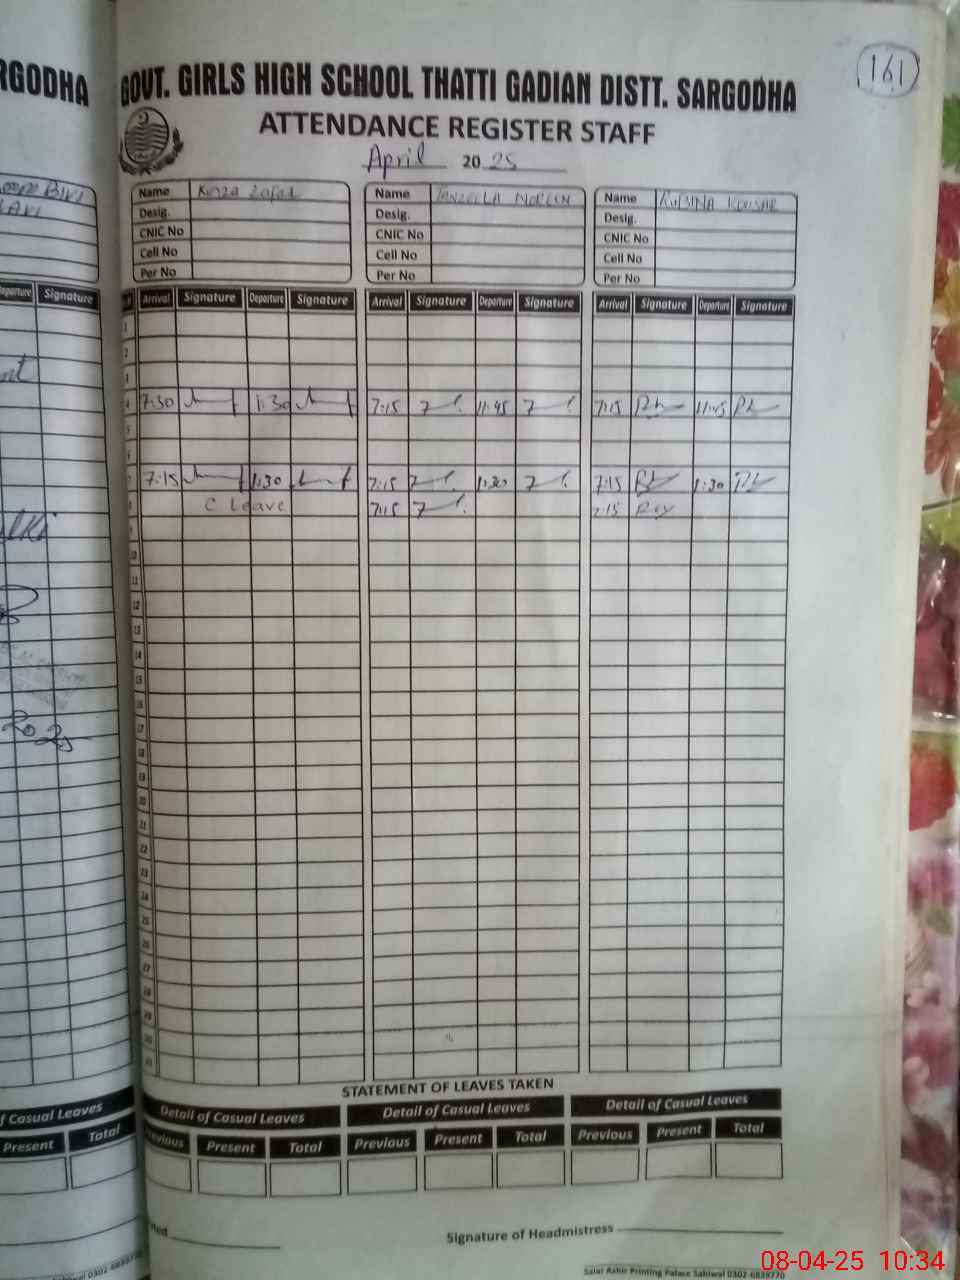 RGODHA
161
GOVT. GIRLS HIGH SCHOOL THATTI GADIAN DISTT. SARGODHA
ATTENDANCE REGISTER STAFF
April 2025
Name Kinza Zafar Name TANZEELA NOREEN Name RUBINA KOUSAR
Desig. Desig. Desig.
CNIC No CNIC No CNIC No
Cell No Cell No Cell No
Per No Per No Per No
Departure Signature Arrival Signature Departure Signature Arrival Signature Departure Signature Arrival Signature Departure Signature
1
2
3
4 7:30 1:30 7:15 11:45 7:15 11:45
5
6
7 7:15 1:30 7:15 1:30 7:15 1:30
8 C Leave 7:15 7:15
9
10
11
12
13
14
15
16
17
2025
18
19
20
21
22
23
24
25
26
27
28
29
30
31
STATEMENT OF LEAVES TAKEN
of Casual Leaves Detail of Casual Leaves Detail of Casual Leaves Detail of Casual Leaves
Present Total Previous Present Total Previous Present Total Previous Present Total
Signature of Headmistress
Sahiwal 0302-6839770 Salar Ashir Printing Palace Sahiwal 0302-6839770
08-04-25 10:34